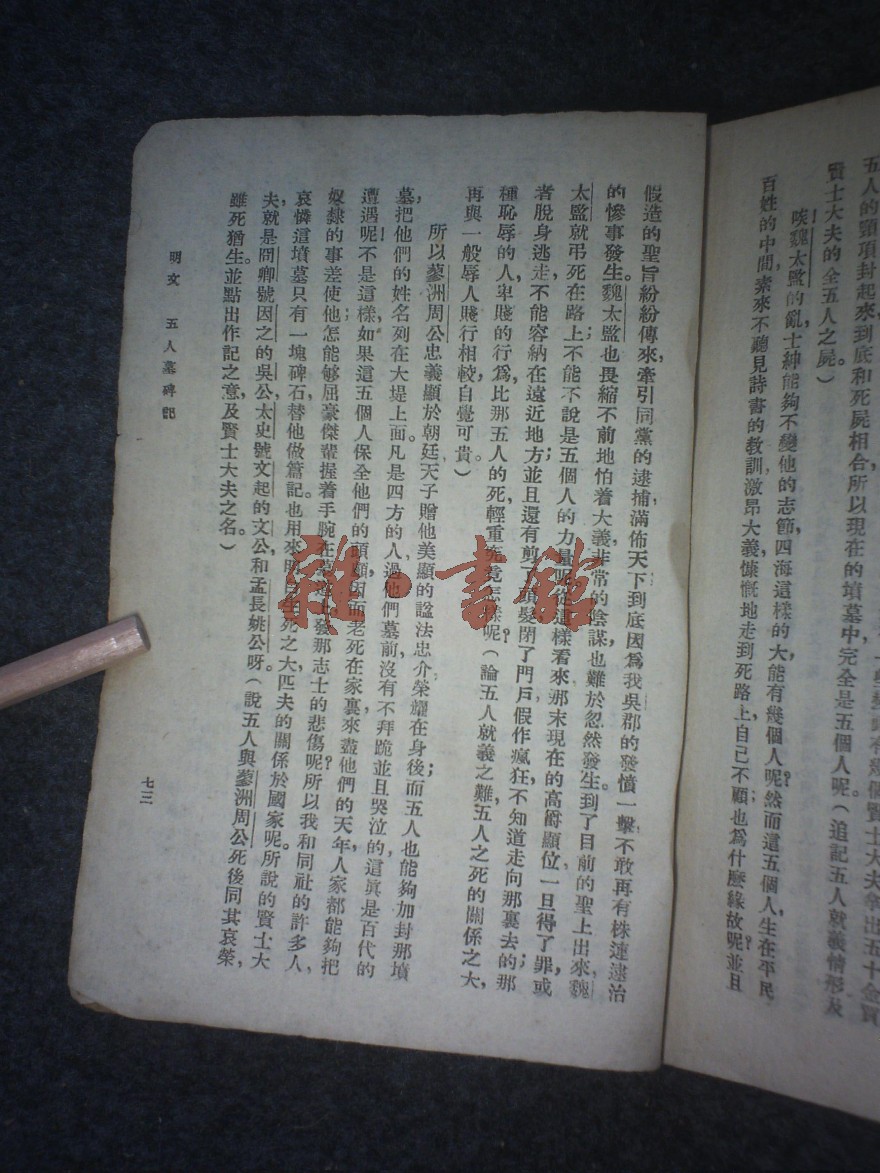 五人的頸項封起來，到底和死屍相合所以現在的墳墓中，完全是五個人呢（追記五人就義情形及
賢士大夫的全五人之屍。）
唉！魏太監的亂士紳能夠不變他的志節，四海這樣的大，能有幾個人呢？然而這五個人，生在平民
百姓的中間，素來不聽見詩書的教訓，激昂大義，慷慨地走到死路上，自己不顧，也爲什麽緣故呢？並且
假造的聖旨紛紛傳來，牽引同黨的逮捕，滿佈天下，到底因爲我吳郡的發憤一擊，不敢再有株連逮治
的慘事發生。魏太監也畏縮不前地怕着大義，非常的陰謀，也難於忽然發生，到了目前的聖上出來，魏
太監就弔死在路上，不能不說是五個人的力量呢。從這樣看來，那末現在的高爵顯位，一旦得了罪，或
者脫身逃走，不能容納在遠近地方，並且還有剪了頭髮，閉了門戶，假作瘋狂，不知道走向那裏去的；那
種恥辱的人，卑賤的行爲，比那五人的死，輕重究竟怎樣呢？（論五人就義之難，五人之死的關係之大，
再與一般辱人賤行相較，自覺可貴。）
所以蓼洲周公忠義顯於朝廷，天子贈他美顯的諡法忠介，榮耀在身後；而五人也能夠加封那墳
墓，把他們的姓名列在大堤上面，凡是四方的人，過他們墓前，沒有不拜跪並且哭泣的，這眞是百代的
遭遇呢！不是這樣，如果這五個人保全他們的頭顱，因而老死在家裏，來盡他們的天年，人家都能夠把
奴隸的事差使他；怎能够屈豪傑輩，握着手腕在墓道上發那志士的悲傷呢？所以我和同社的許多人，
哀憐這墳墓只有一塊碑石，替他做篇記。也用來明白生死之大，匹夫的關係於國家呢。所說的賢士大
夫，就是冏卿號因之的吳公，太史號文起的文公，和孟長姚公呀。（說五人與蓼洲周公死後同其哀榮，
雖死猶生。並點出作記之意，及賢士大夫之名。）
明文　五人墓碑記
七三
雜·書館